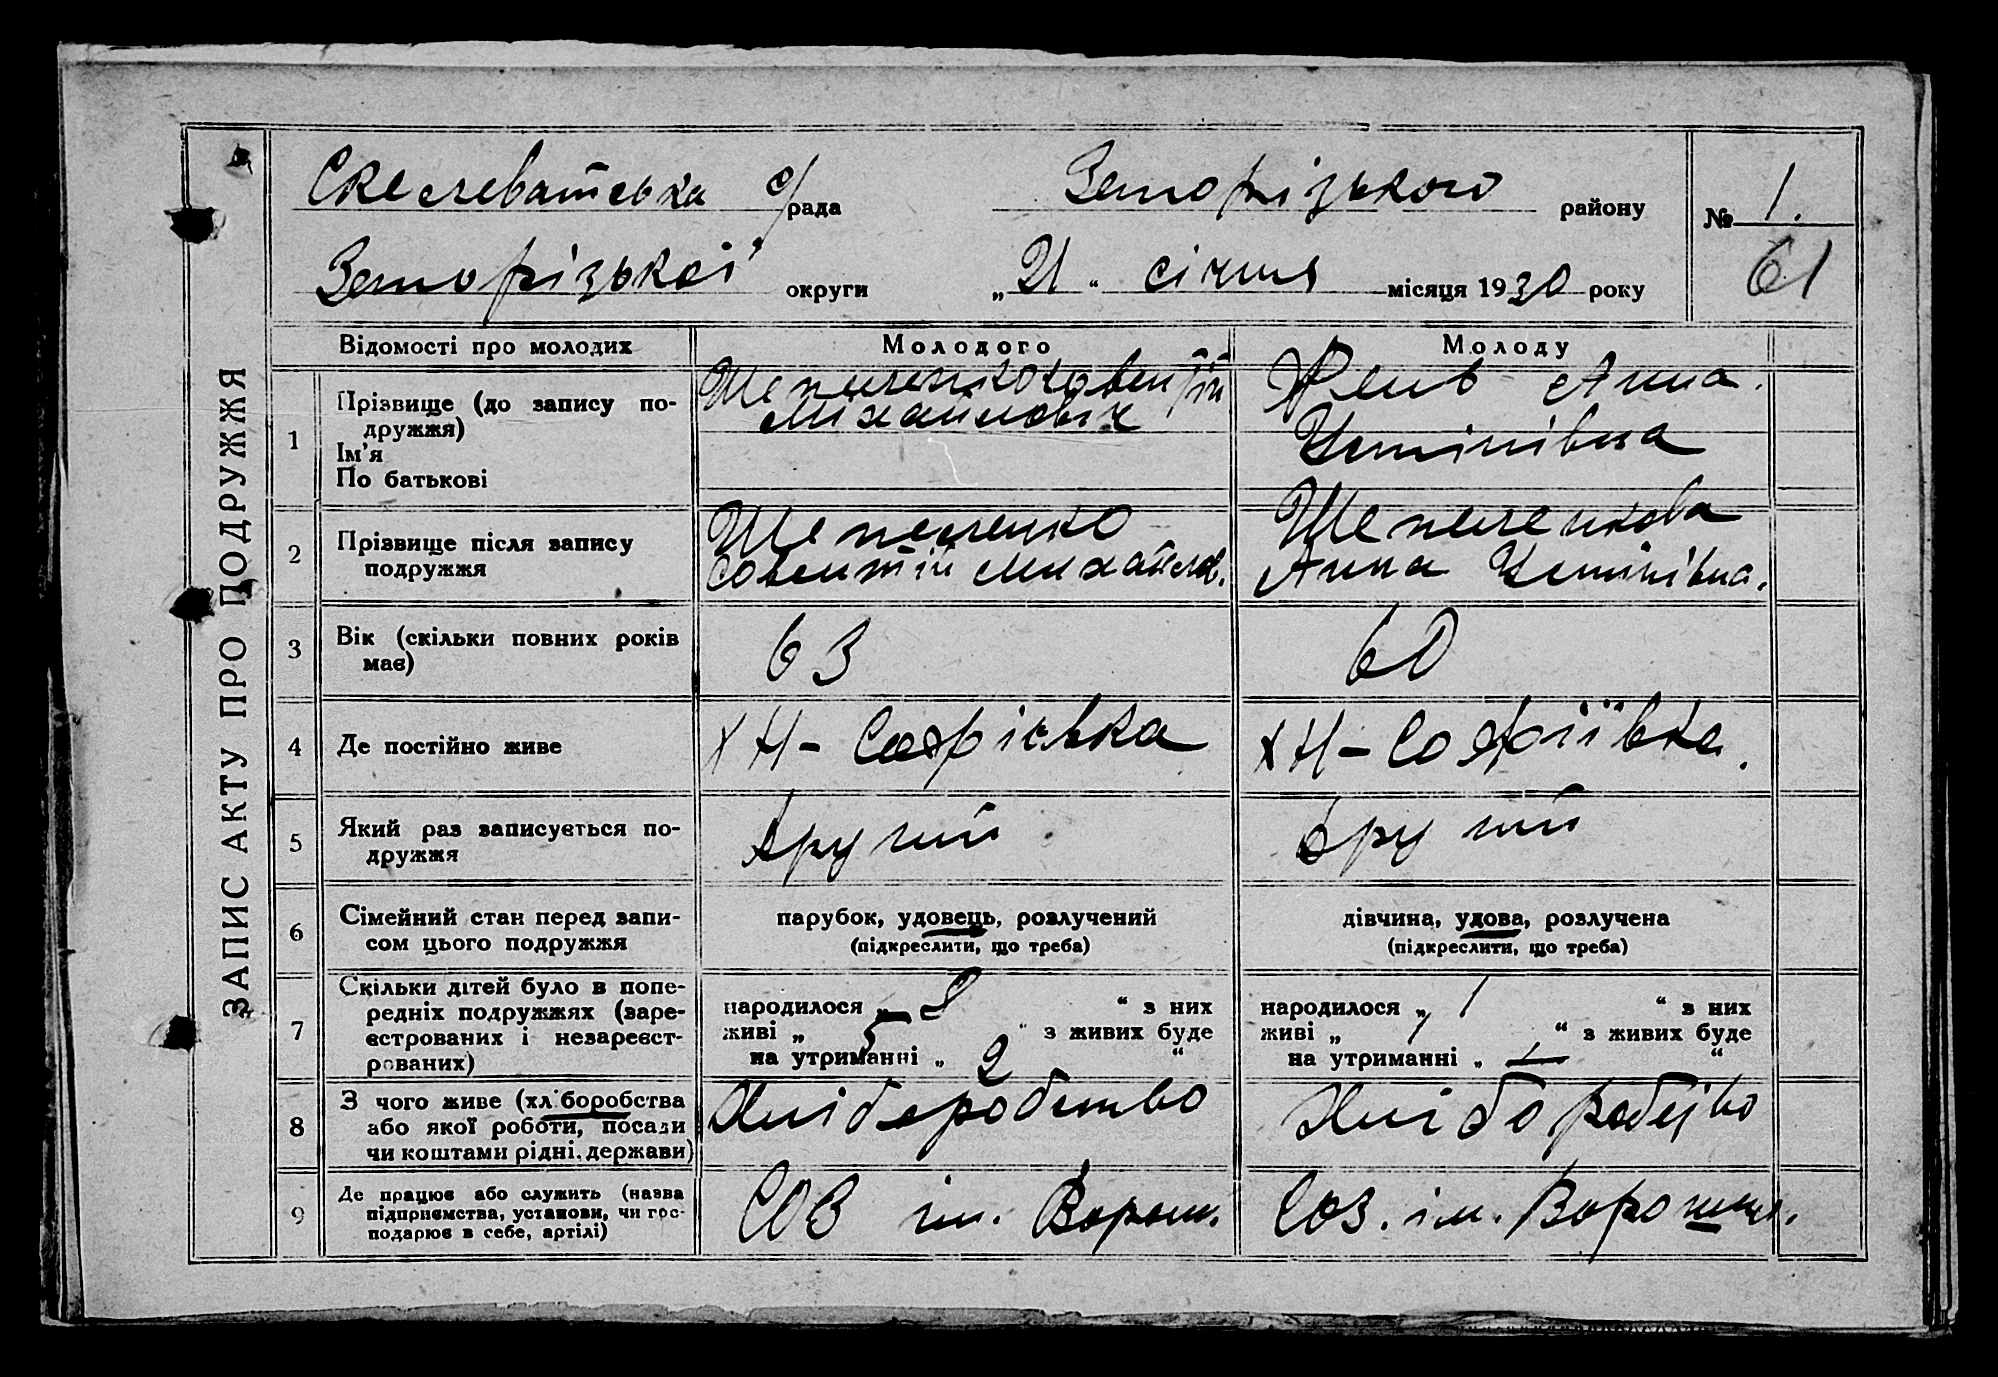 ЗАПИС АКТУ ПРО ПОДРУЖЖЯ
Скелеватська с/рада Запорізького району № 1.
Запорізької округи „21“ січня місяця 1930 року 61
Відомості про молодих Молодого Молоду
1 Прізвище (до запису подружжя)
Ім'я
По батькові
Михайлович
Анна
Устинівна
2 Прізвище після запису
подружжя
Анна Устинівна.
3 Вік (скільки повних років
має)
63 60
4 Де постійно живе ХН- Софіївка ХН-Софіївка.
5 Який раз записується по-
дружжя
другий другий
6 Сімейний стан перед запи-
сом цього подружжя
парубок, удовець, розлучений
(підкреслити, що треба)
дівчина, удова, розлучена
(підкреслити, що треба)
7 Скільки дітей було в попе-
редніх подружжях (заре-
єстрованих і незареєст-
рованих)
народилося „ 8 “ з них
живі „ 5 “ з живих буде
на утриманні „ 2 “
народилося „ 1 “ з них
живі „ 1 “ з живих буде
на утриманні „ “
8 З чого живе (хліборобства
або якої роботи, посади
чи коштами рідні, держави)
Хліборобство Хліборобство
9 Де працює або служить (назва
підприємства, установи, чи гос-
подарює в себе, артілі)
СОЗ ім. Ворош. Соз. ім. Ворошил.